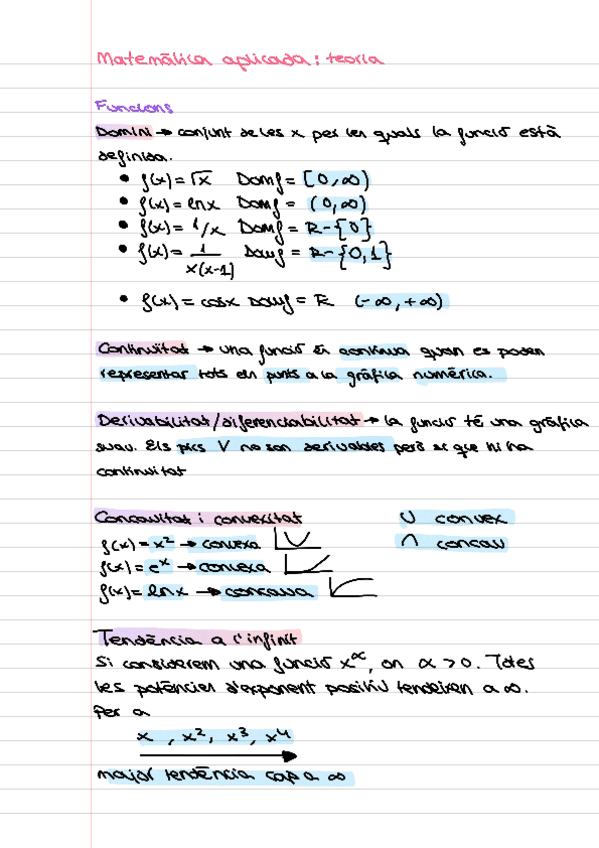 Matemàtica aplicada: teoria
Funcions
Domini → conjunt de les x per les quals la funció està
definida.
• f(x) = √x Dom f = [0,∞)
• f(x) = ln x Dom f = (0,∞)
• f(x) = 1/x Dom f = R-{0}
• f(x) = 1/x(x-1) Dom f = R-{0,1}
• f(x) = cosx Dom f = R (-∞,+∞)
Continuïtat → una funció és contínua quan es poden
representar tots els punts a la gràfica numèrica.
Derivabilitat/diferenciabilitat → la funció té una gràfica
suau. Els pics V no son derivables però sí que hi ha
continuitat
Concavitat i convexitat ∪ convex
f(x) = x² → convexa ∩ concau
f(x) = eˣ → convexa
f(x) = ln x → concava
Tendència a l'infinit
Si considerem una funció x^α, on α > 0. Totes
les potències d'exponent positiu tendeixen a ∞.
Per a
x , x², x³, x⁴
major tendència cap a ∞